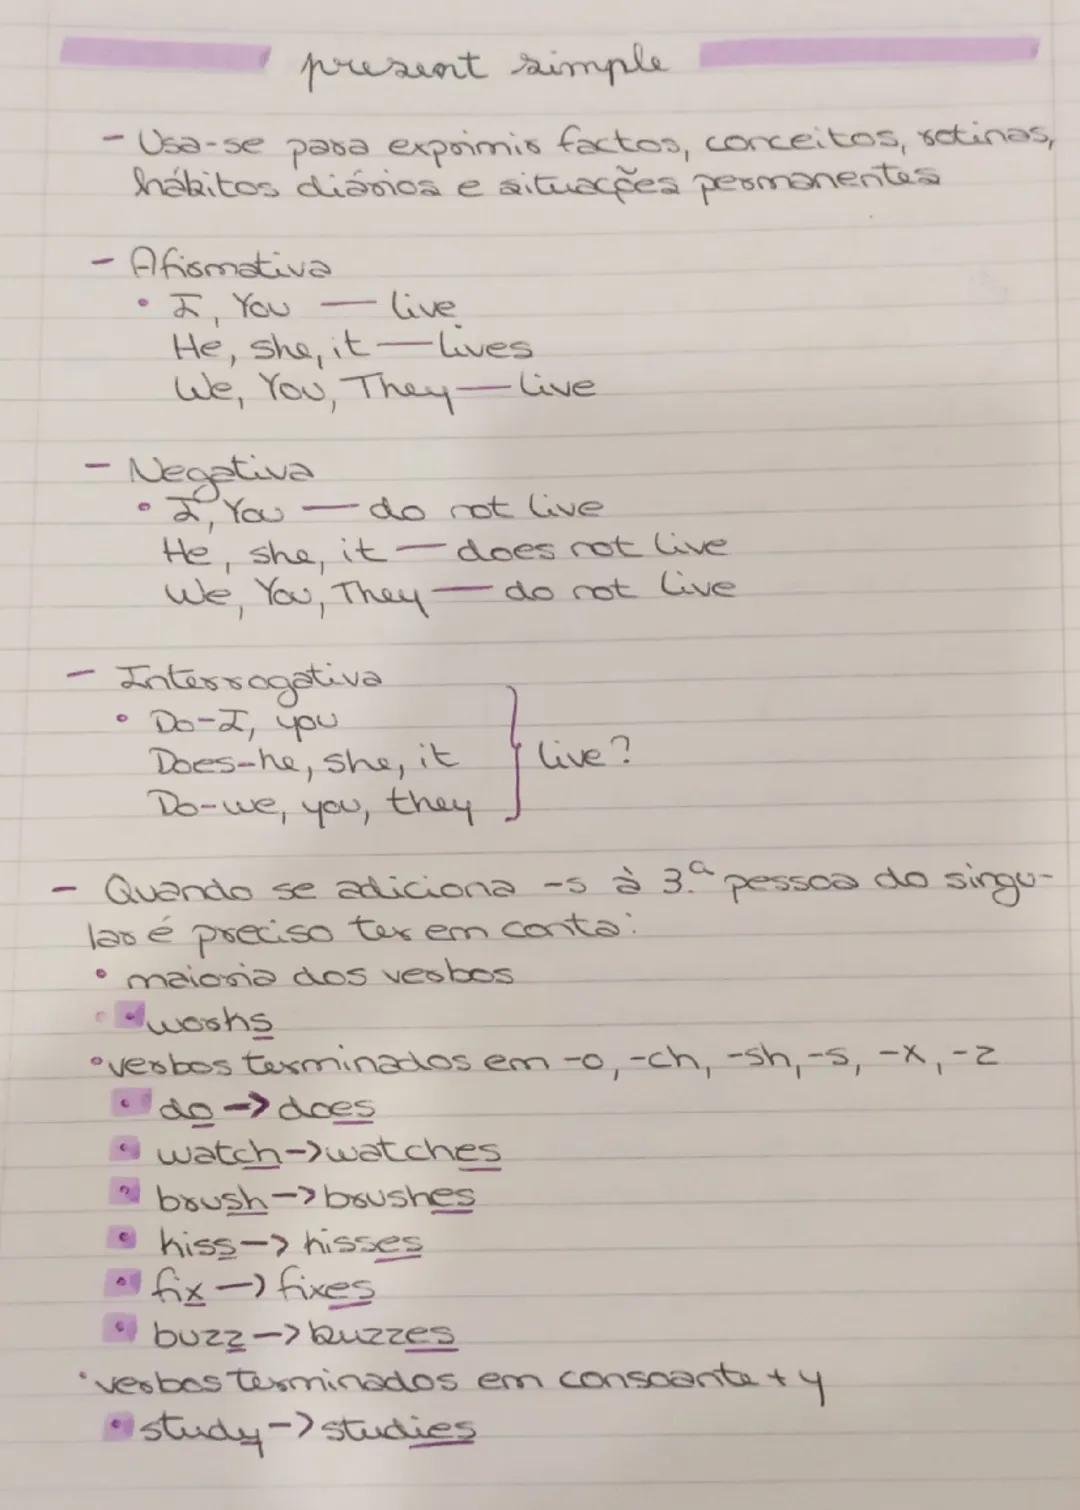 present simple
- Usa-se para exprimir factos, conceitos, rotinas,
hábitos diários e situações permanentes
- Afirmativa
• I, You — live
He, she, it — lives
We, You, They — live
- Negativa
• I, You — do not live
He, she, it — does not live
We, You, They — do not live
- Interrogativa
• Do-I, you
Does-he, she, it } live?
Do-we, you, they
- Quando se adiciona -s à 3.ª pessoa do singu-
lar é preciso ter em conta:
• maioria dos verbos
• works
• verbos terminados em -o, -ch, -sh, -s, -x, -z
• do -> does
• watch -> watches
• brush -> brushes
• kiss -> kisses
• fix -> fixes
• buzz -> buzzes
• verbos terminados em consoante + y
• study -> studies